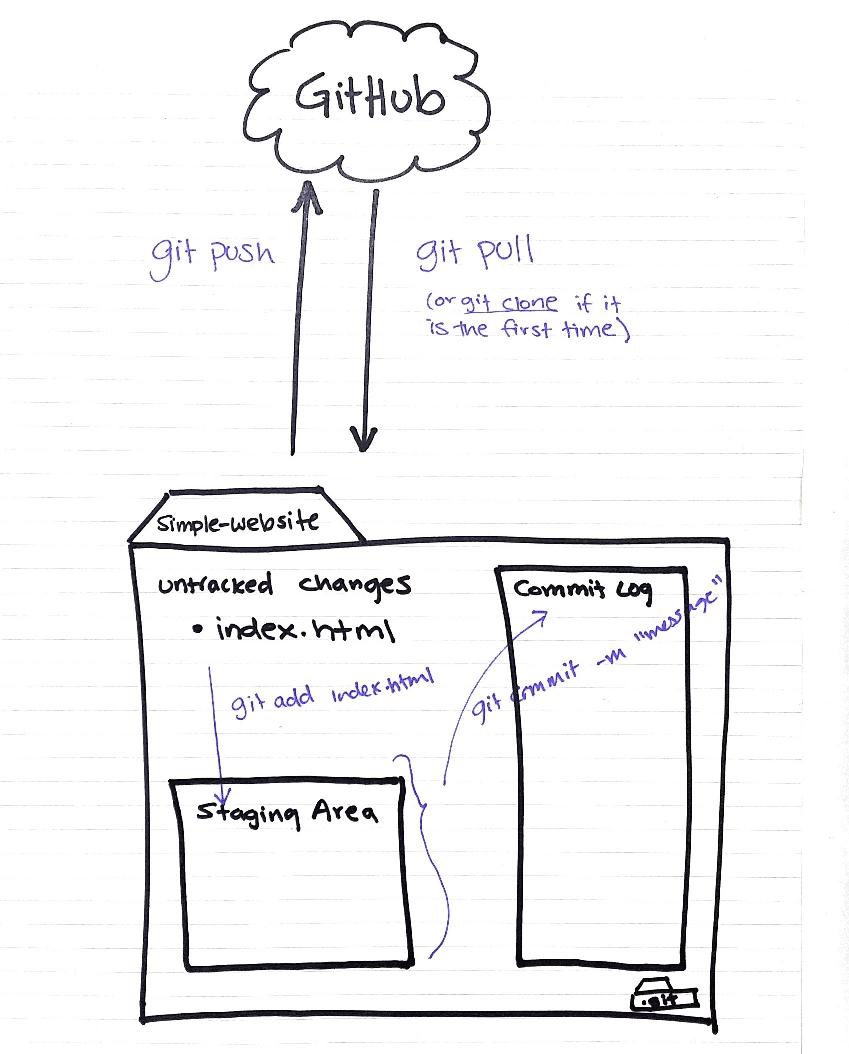 GitHub
git push
git pull
(or git clone if it
is the first time)
Simple-website
untracked changes
• index.html
git add index.html
Staging Area
Commit Log
git commit -m "message"
.git